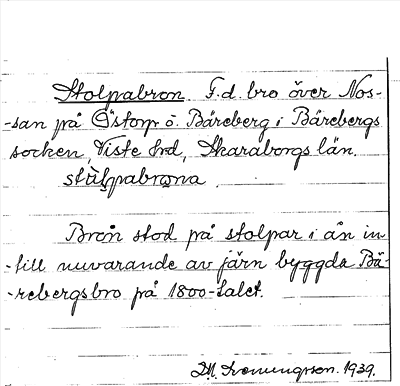 Stolpabron F.d. bro över Nos-
-san på Östorp o. Bäreberg i Bärebergs
socken, Viste hrd, Skaraborgs län.
Bron stod på stolpar i ån in
-till nuvarande av järn byggda Bä-
-rebergsbro på 1800-talet.
1939.